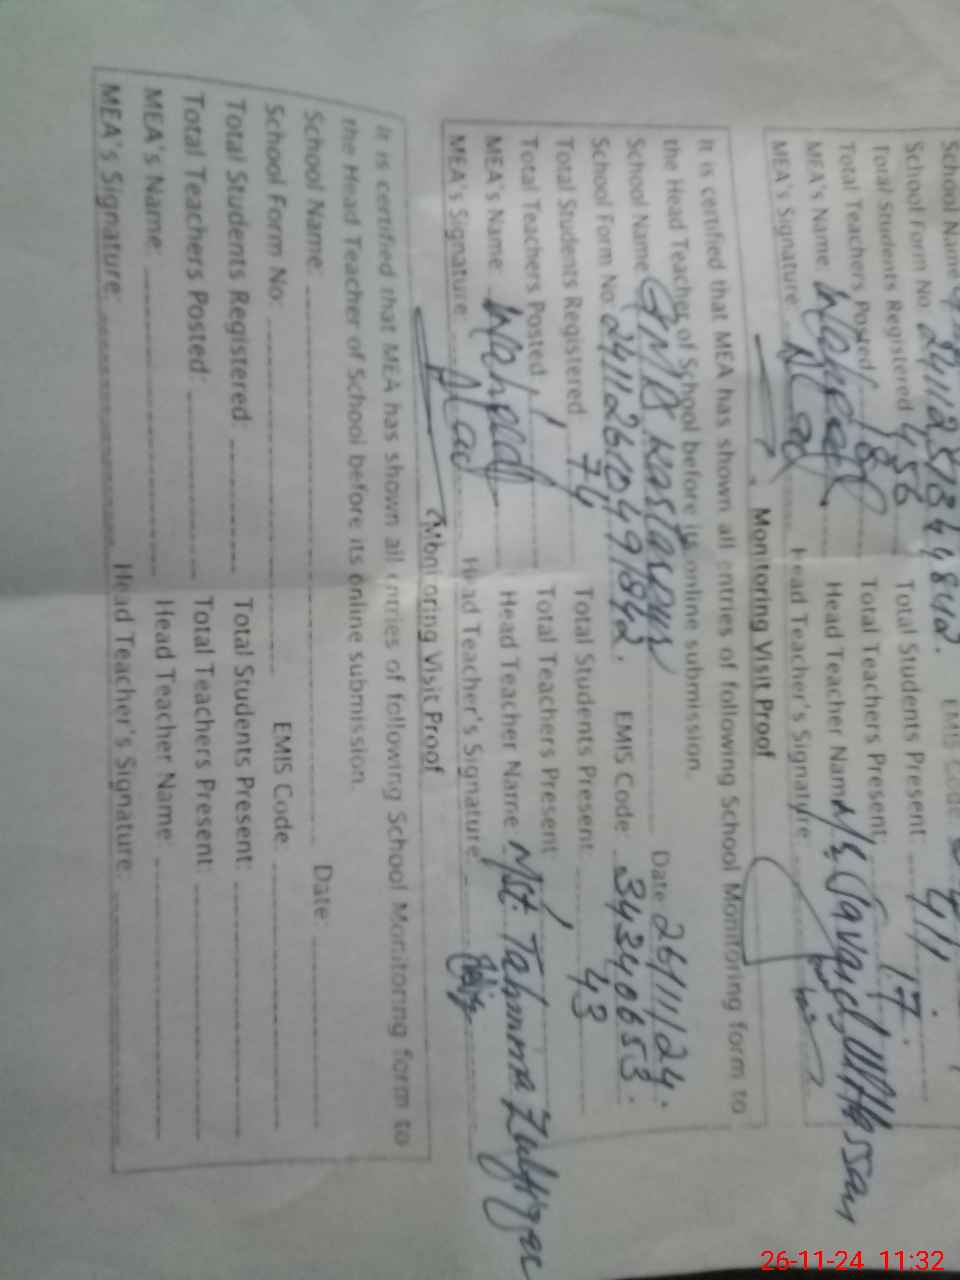 School Name
School Form No. 2411123
Total Students Registered 456 Total Students Present: 411
Total Teachers Posted 18 Total Teachers Present: 17
MEA's Name Waheed Head Teacher Name
MEA's Signature Head Teacher's Signature
Monitoring Visit Proof
It is certified that MEA has shown all entries of following School Monitoring form to
the Head Teacher of School before its online submission.
School Name Date 26/11/24.
School Form No. EMIS Code: 34340653.
Total Students Registered 74 Total Students Present: 43
Total Teachers Posted 1 Total Teachers Present: 1
MEA's Name: Waheed Head Teacher Name: Mst. Tahmina Zulfiqar
MEA's Signature Head Teacher's Signature
Monitoring Visit Proof
It is certified that MEA has shown all entries of following School Monitoring form to
the Head Teacher of School before its online submission.
School Name: Date:
School Form No: EMIS Code:
Total Students Registered Total Students Present:
Total Teachers Posted: Total Teachers Present:
MEA's Name: Head Teacher Name:
MEA's Signature: Head Teacher's Signature:
26-11-24 11:32